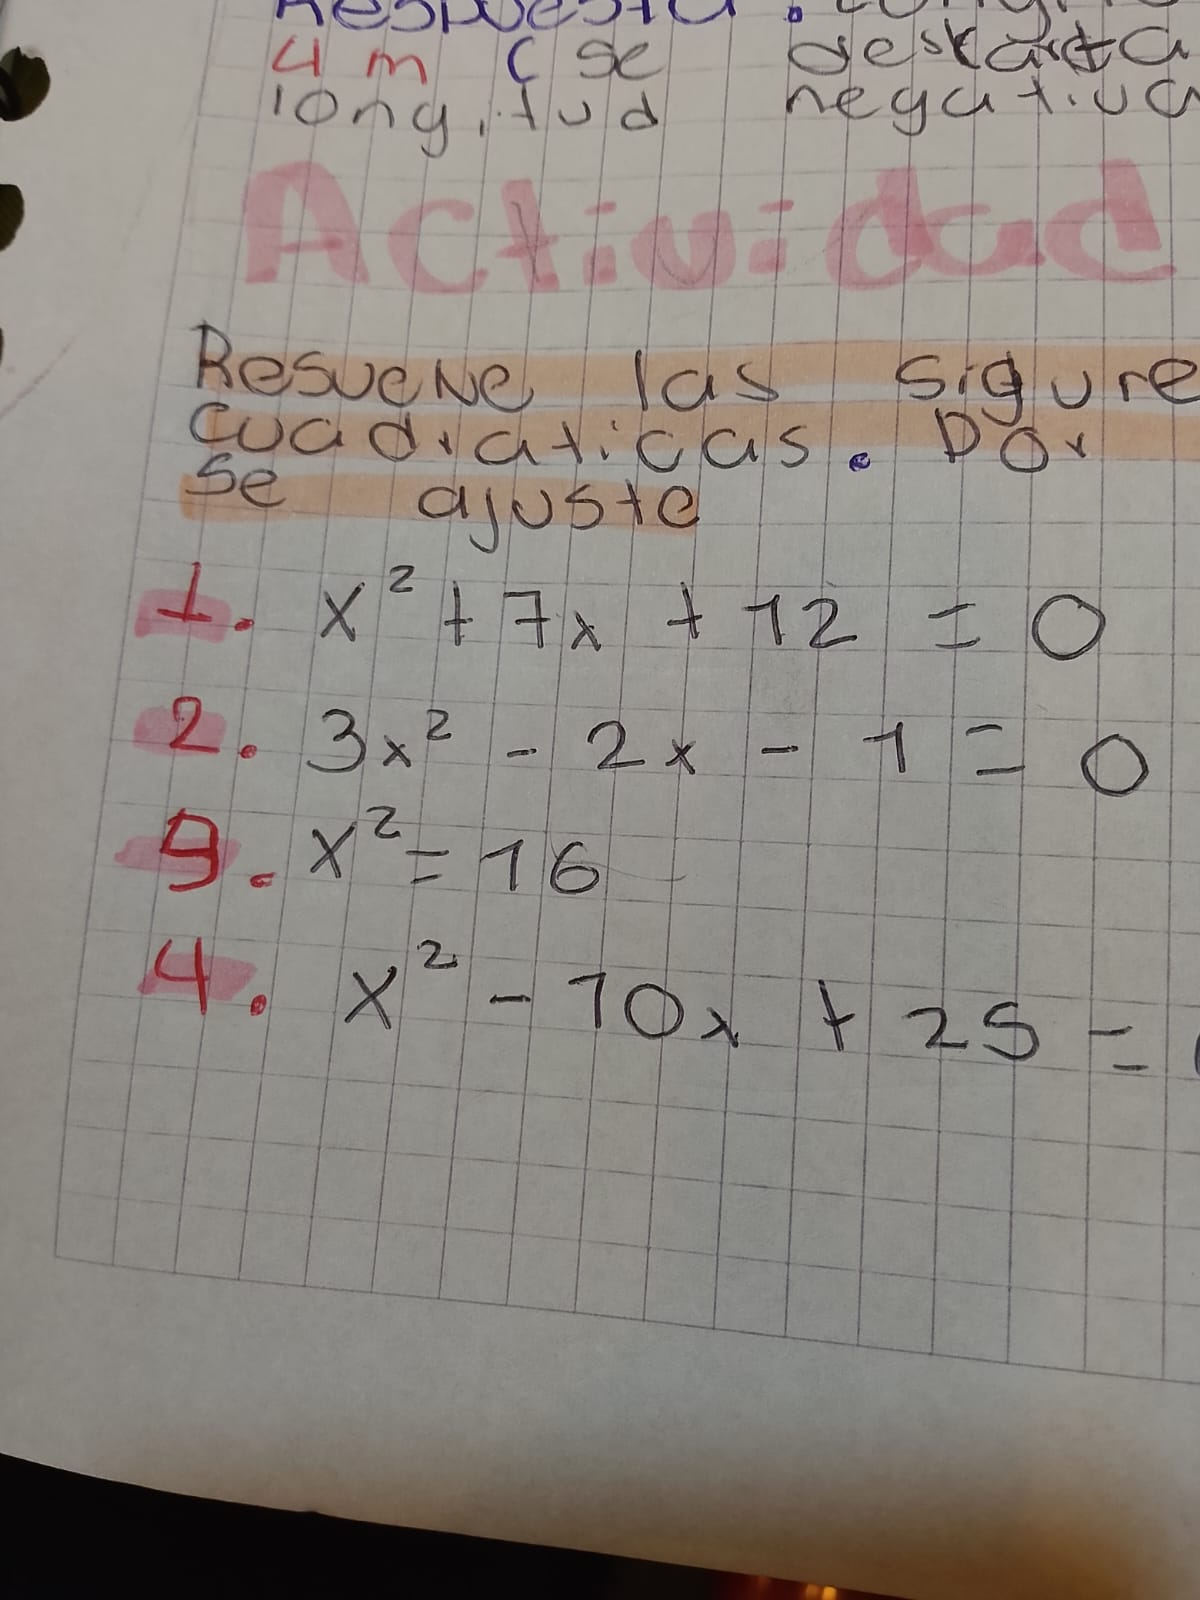 Respuesta:
4 m (se deskarta
longitud negativa
Actividad
Resuelve las sigure
cuadraticas. Por
se ajuste
1. x² + 7x + 12 = 0
2. 3x² - 2x - 1 = 0
3. x² = 16
4. x² - 10x + 25 =